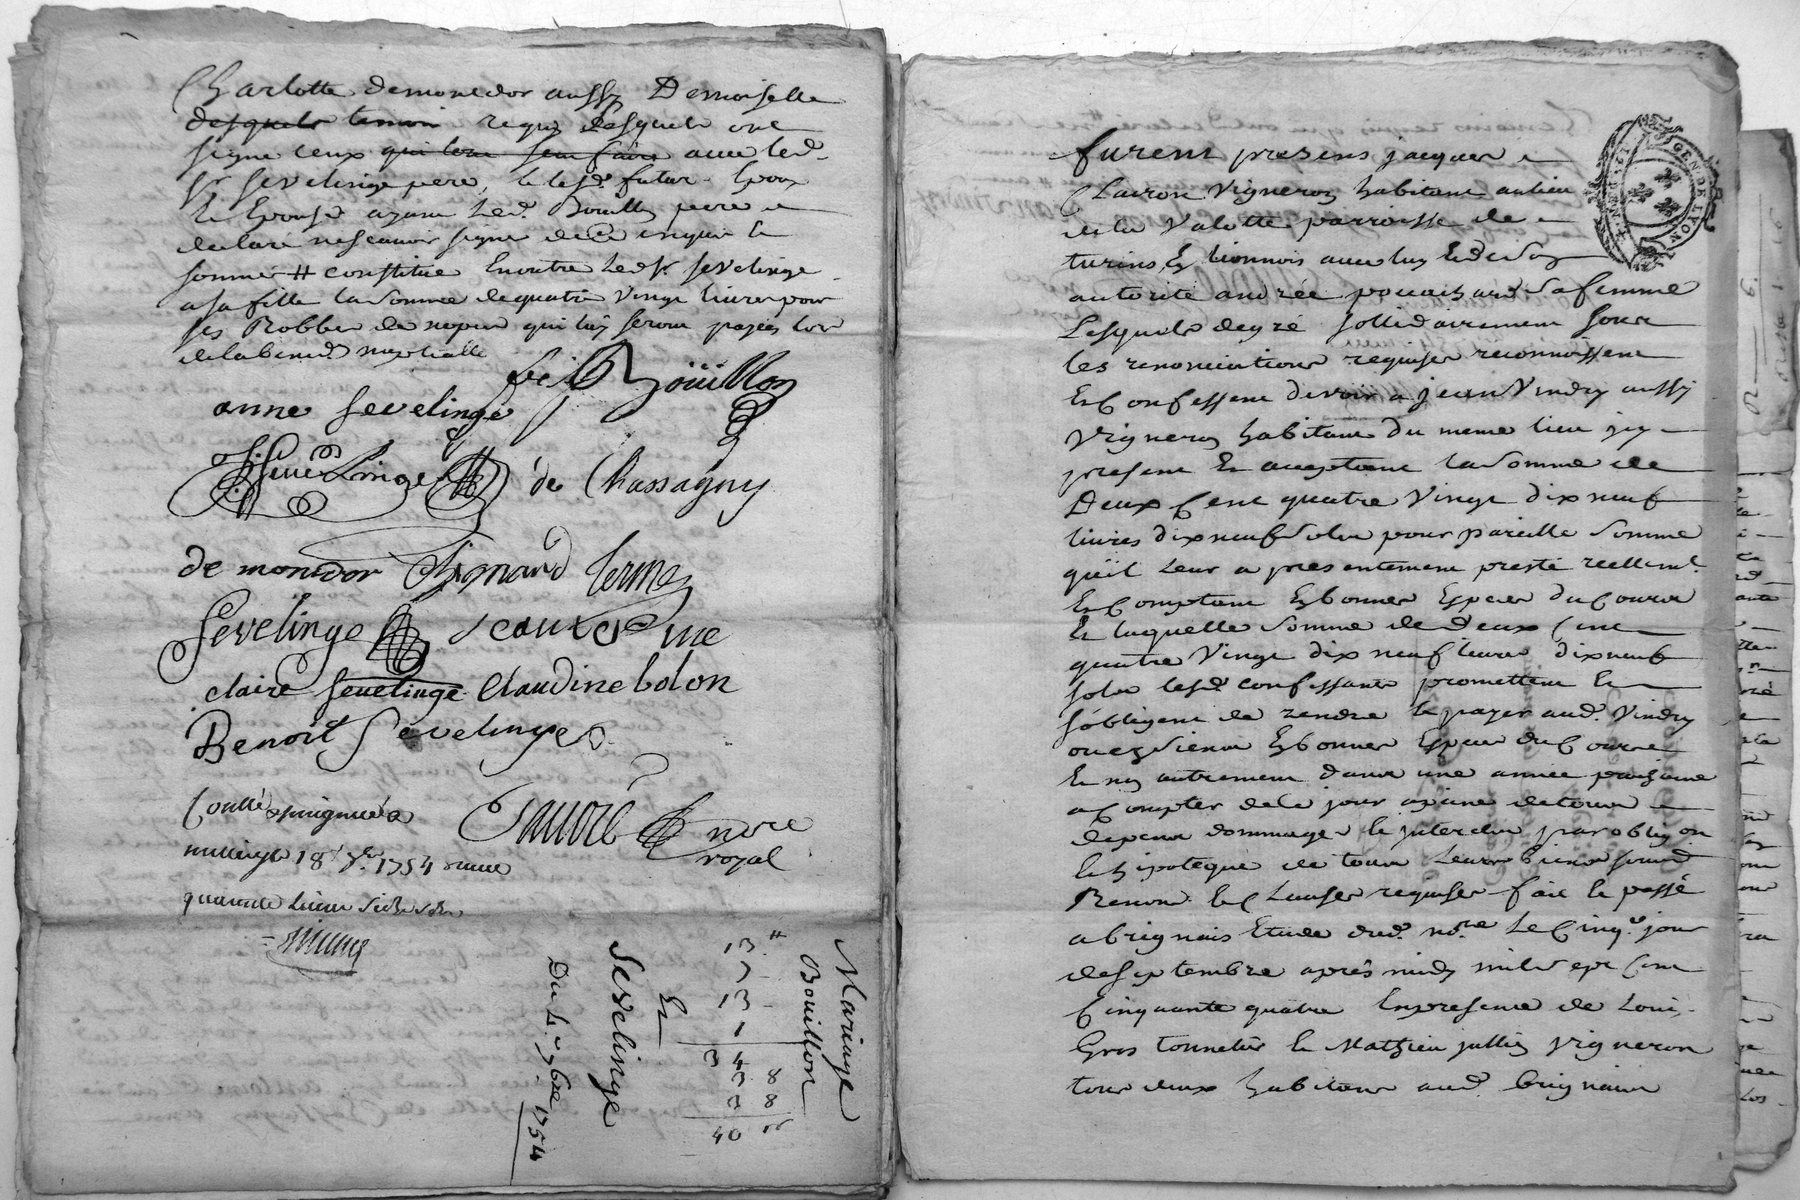 Charlotte demonedor aussy Demoiselle
desquels temoin requis Lesquels ont
signe ceux qui lont seu faire avec led.
Sr sevelinge pere, le lesd. futur Epoux
Et Epouse ayant Led. Bouillon pere
declaré ne scavoir signe de ce enquis Et
sommé # constitue Enoutre Led. Sr. sevelinge
a sa fille la somme de quatre vingt livres pour
ses Robbes de nopces qui luy seront payées lors
de la bened. nuptialle
Bouillon
anne sevelinge
de Chassagny
de monedor
Sevelinge
claire sevelinge Claudine bolon
Benoit Sevelinge
nore
royal
Conllé
18 7bre 1754
quarante Livres
Mariage
Bouillon
Et
Sevelinge
Du 4e 7bre 1754
13 #
7 -
13 -
1
34
3 8
3 8
40
GEN DE LYON
furent presens jacques
Clairon Vigneron habitant au lieu
de la Valotte parroisse de
turins En lionnois avec luy Et de son
autorité andrée sa femme
Lesquels de gré sollidairement sous
les renonciations requises reconnoissent
Et Confessent devoir a jean Vindry aussy
Vigneron habitant du meme lieu icy
present Et acceptant la somme de
Deux Cent quatre Vingt dix neuf
livres dix neuf sols pour pareille somme
quil Leur a presentement presté reellemt.
Et Comptant En bonnes Especes du Cours
Et laquelle somme de deux Cent
quatre Vingt dix neuf livres dix neuf
sols lesd. confessants promettent Et
sobligent de rendre Et payer aud. Vindry
ou es siens En bonnes Especes du Cours
Et non autrement dans une année prochaine
a Compter de ce jour a peine de tous
depens dommages Et interests par obligon
Et hipoteque de tous Leurs biens
Renon. Et Clauses requises fait Et passé
a brignais Etude dud. nore Le Cinqe. jour
de septembre après midy mil sept Cent
Cinquante quatre En presence de Louis
Gros tonnelier Et Mathieu jullien Vigneron
tous deux habitans aud. brignais